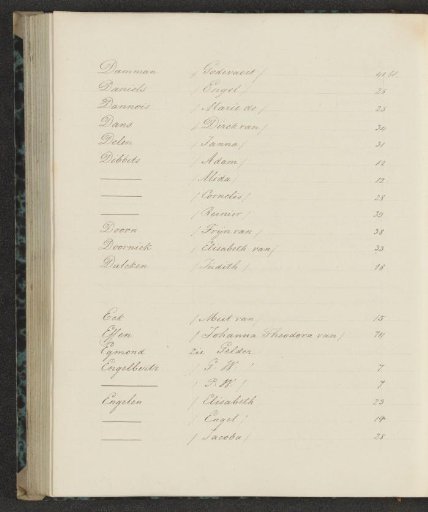 Damman (Godevaert) 41.51.
Daniels (Engel) 25
Dannois (Marie de) 23
Dans (Dirck van) 34
Delen (Janna) 31
Dibbets (Adam) 12
——— (Alida) 12
——— (Cornelis) 28
——— (Reinier) 39
Doorn (Fryn van) 38
Doornick (Elisabeth van) 23
Dutcken (Judith) 18
Eck (Meit van) 15
Effen (Johanna Theodora van) 74
Egmond Zie Felder
Engelbertz (F. W.) 7
——— (P. W.) 7
Engelen (Elisabeth 23
——— (Engel) 14
——— (Jacoba) 28